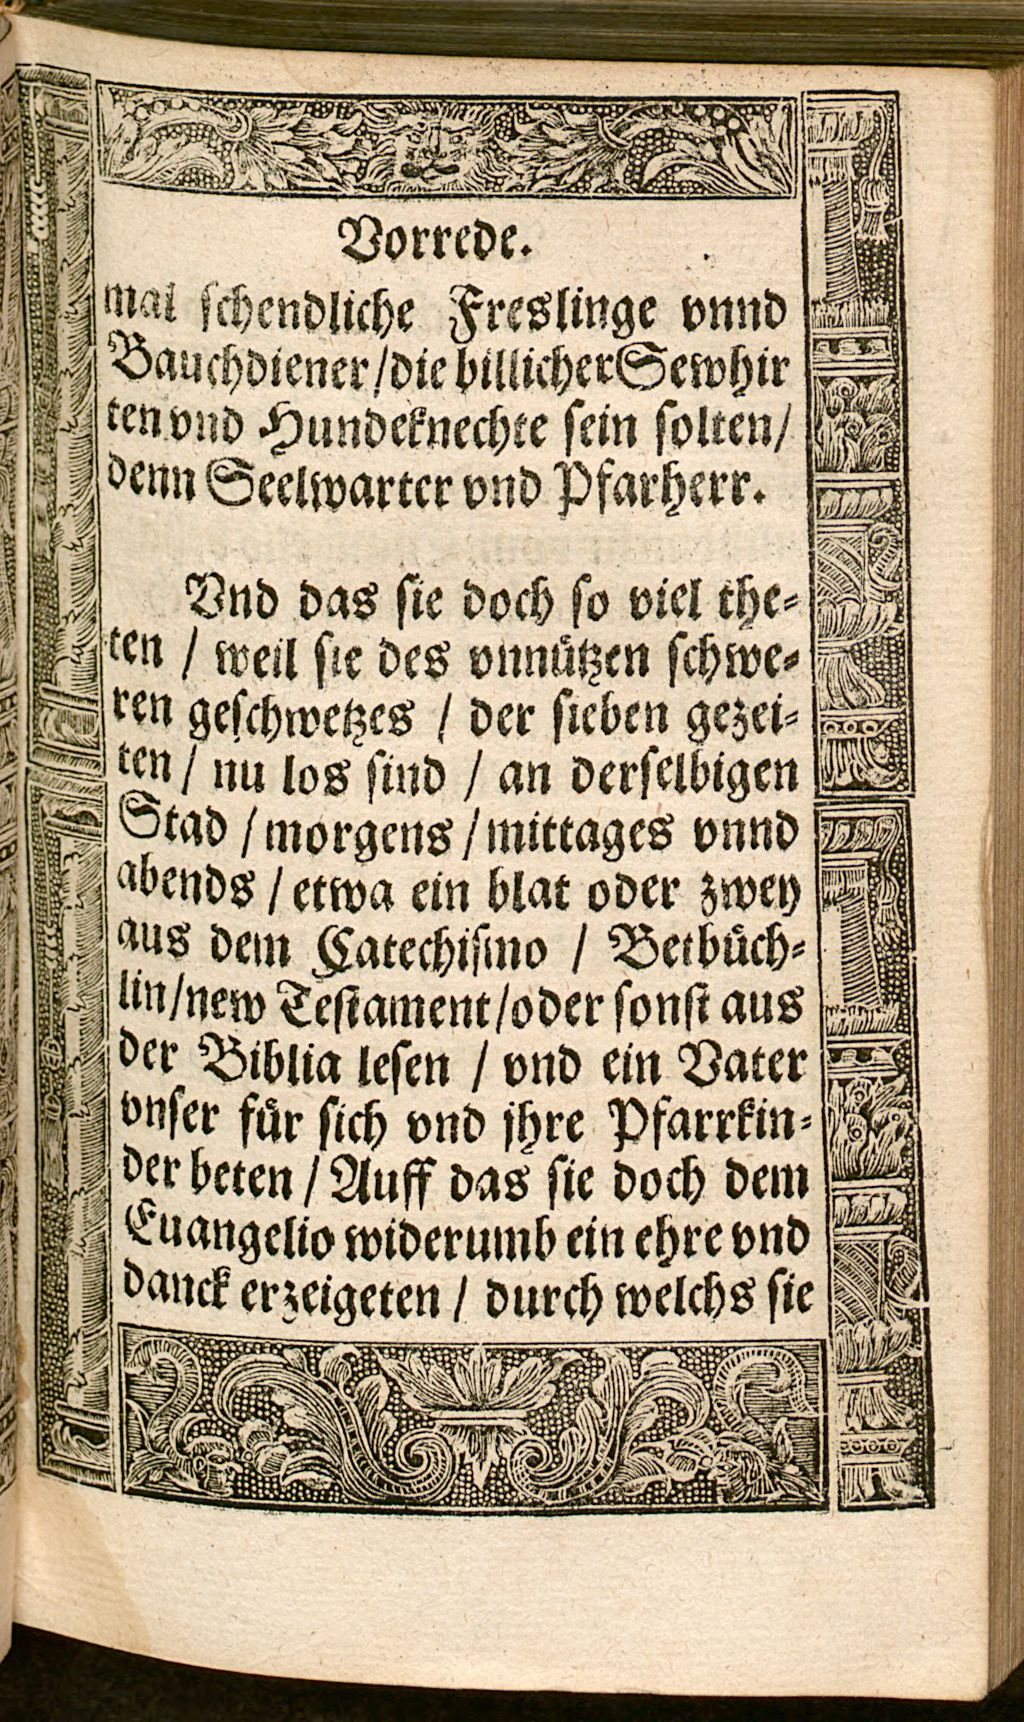 Vorrede.
mal schendliche Freslinge vnnd
Bauchdiener/die billicher Sewhir
ten vnd Hundeknechte sein solten/
denn Seelwarter vnd Pfarherr.
Vnd das sie doch so viel the-
ten / weil sie des vnnützen schwe-
ren geschwetzes / der sieben gezei-
ten / nu los sind / an derselbigen
Stad / morgens / mittages vnnd
abends / etwa ein blat oder zwey
aus dem Catechismo / Betbüch-
lin/new Testament/oder sonst aus
der Biblia lesen / vnd ein Vater
vnser für sich vnd jhre Pfarrkin-
der beten / Auff das sie doch dem
Euangelio widerumb ein ehre vnd
danck erzeigeten / durch welchs sie